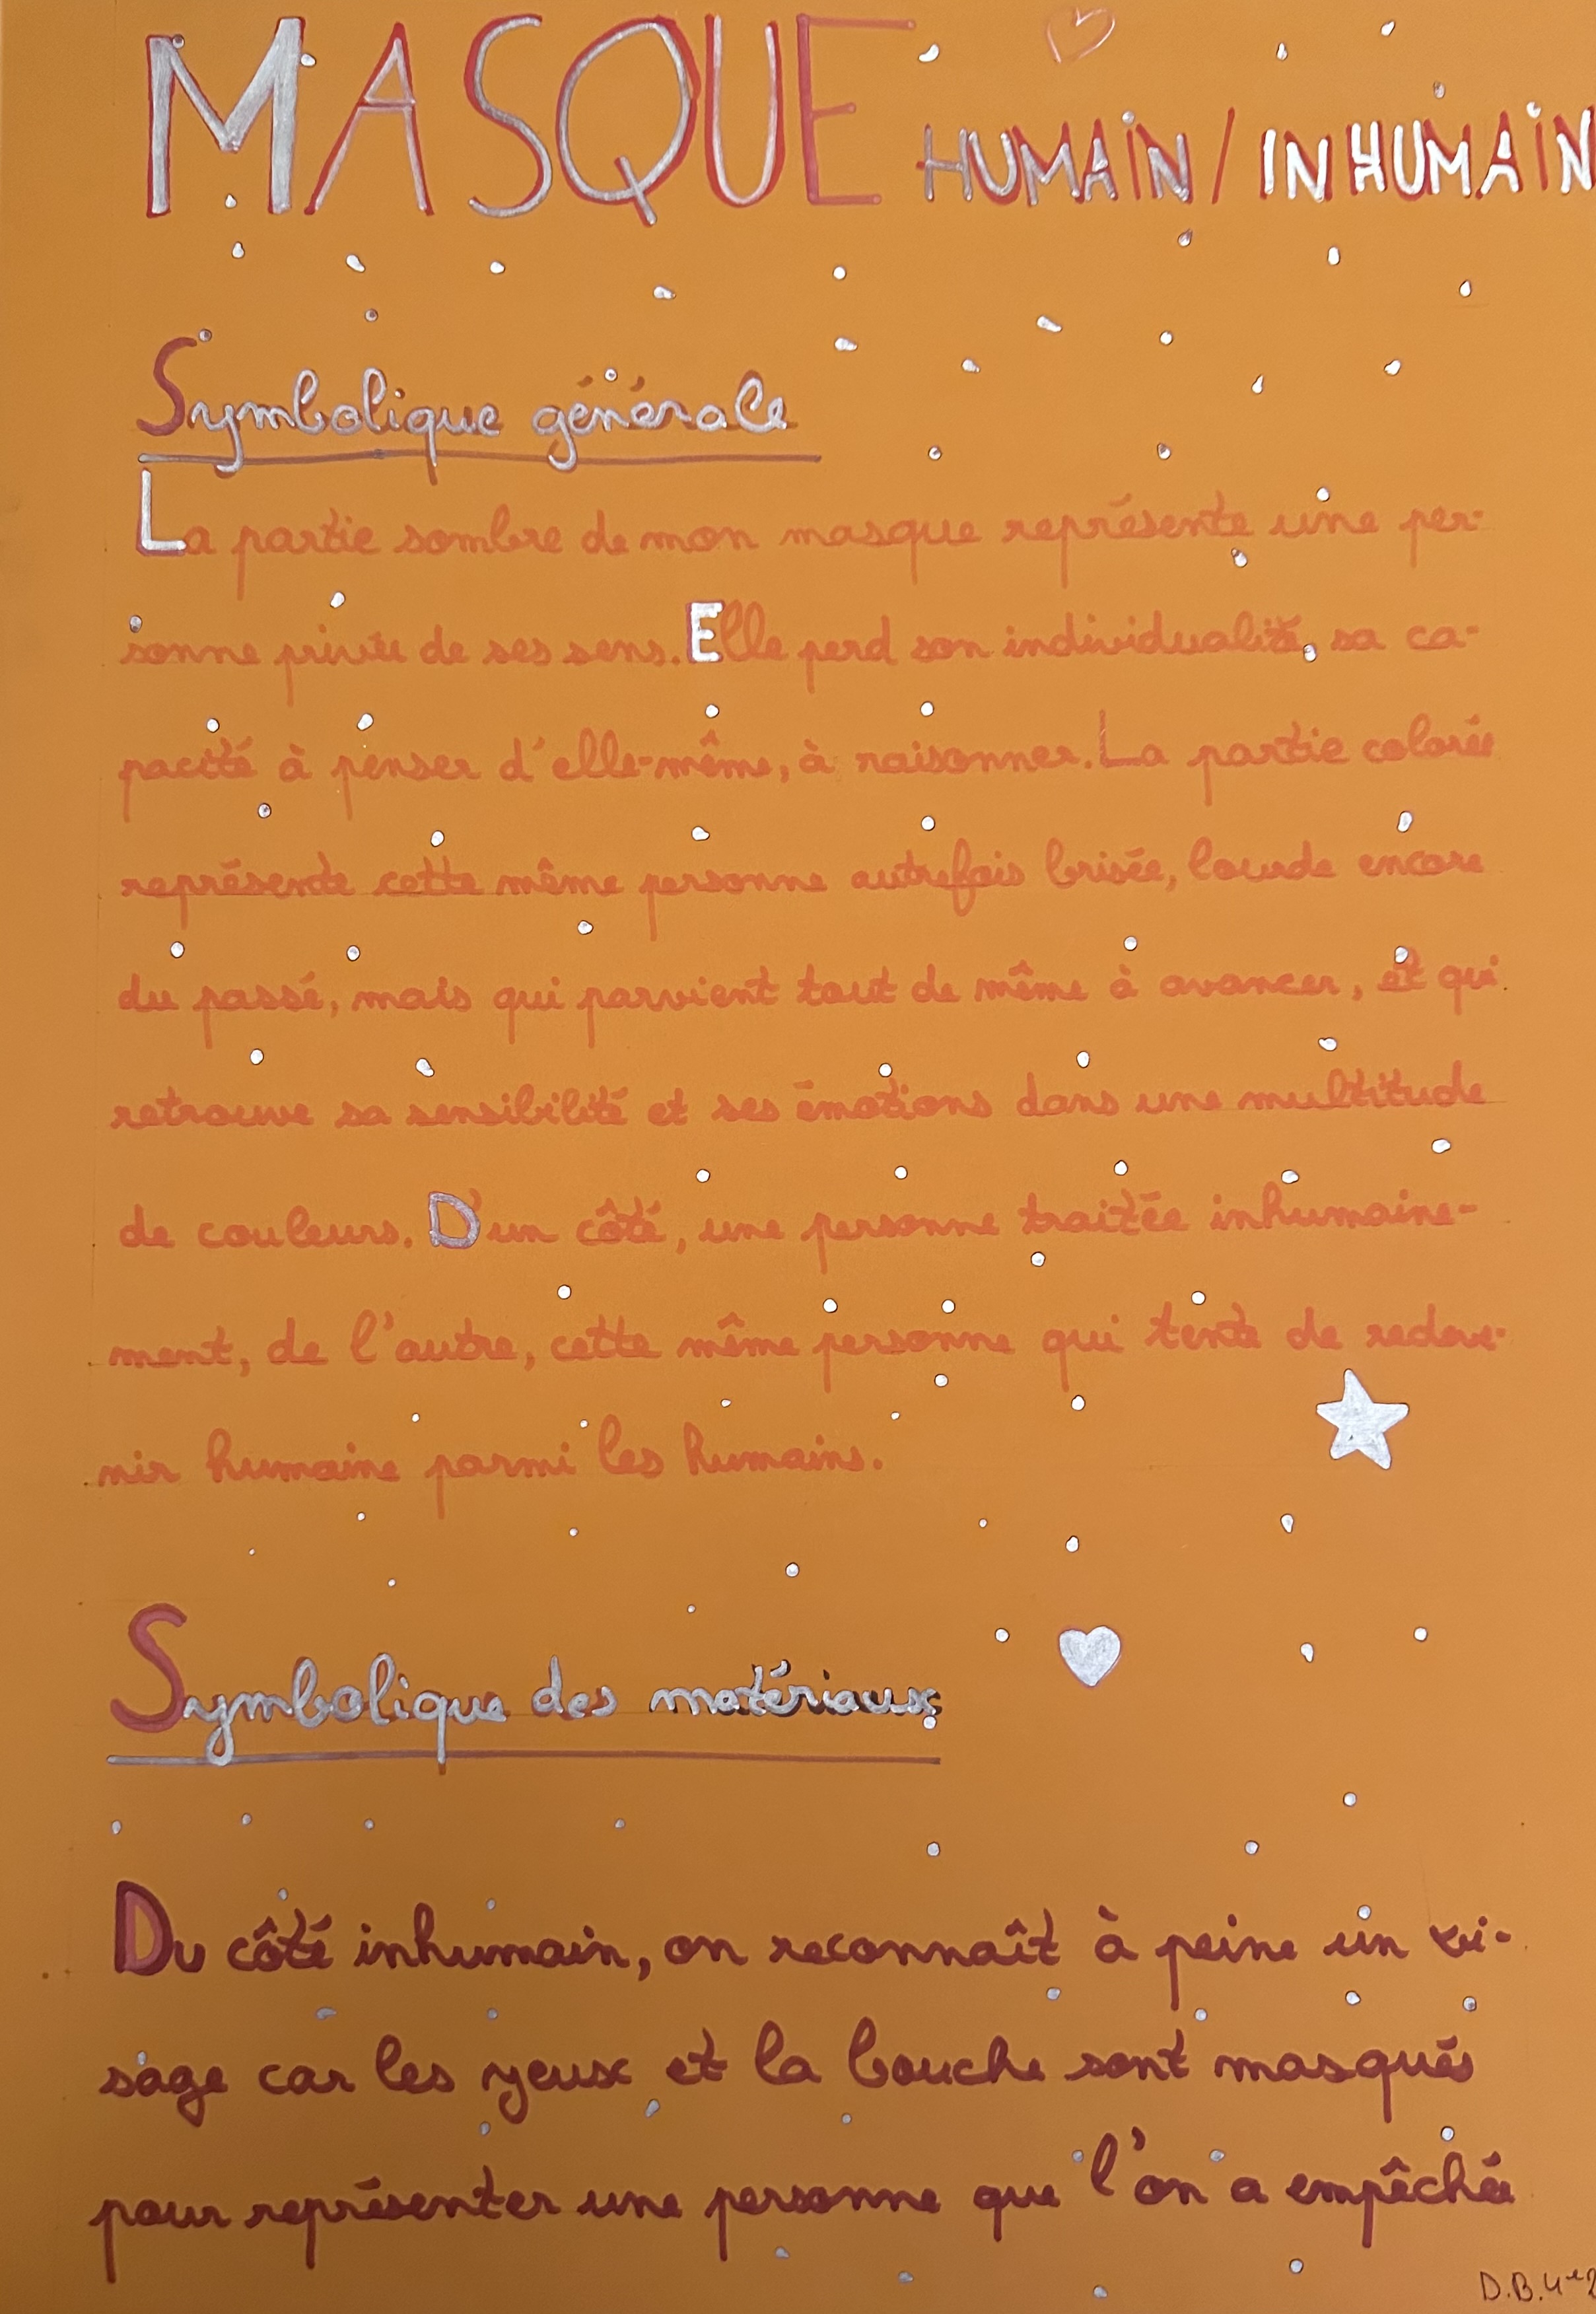 MASQUE HUMAIN / INHUMAIN
Symbolique générale
La partie sombre de mon masque représente une per-
sonne privée de ses sens. Elle perd son individualité, sa ca-
pacité à penser d'elle-même, à raisonner. La partie colorée
représente cette même personne autrefois brisée, lourde encore
du passé, mais qui parvient tout de même à avancer, et qui
retrouve sa sensibilité et ses émotions dans une multitude
de couleurs. D'un côté, une personne traitée inhumaine-
ment, de l'autre, cette même personne qui tente de redeve-
nir humaine parmi les humains.
Symbolique des matériaux
Du côté inhumain, on reconnaît à peine un vi-
sage car les yeux et la bouche sont masqués
pour représenter une personne que l'on a empêchée
D.B. 4e2